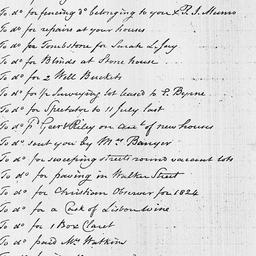 To do for fencing do belonging to you & P. J. Munro
To do for repairs at your houses
To do for Tombstone for Sarah L. Jay
To do for Blinds at Stone house
To do for 2 Well Buckets
To do for ½ Surveying lot leased to P. Byrne
To do for Spectator to 11 July last
To do pd Geer & Riley on acct of new houses
To do sent you by Mrs Banyer
To do for sweeping streets round vacant lots
To do for paving in Walker Street
To do for Christian Observer for 1824
To do for a Cask of Lisbon wine
To do for 1 Box Claret
To do paid Mr Watkins